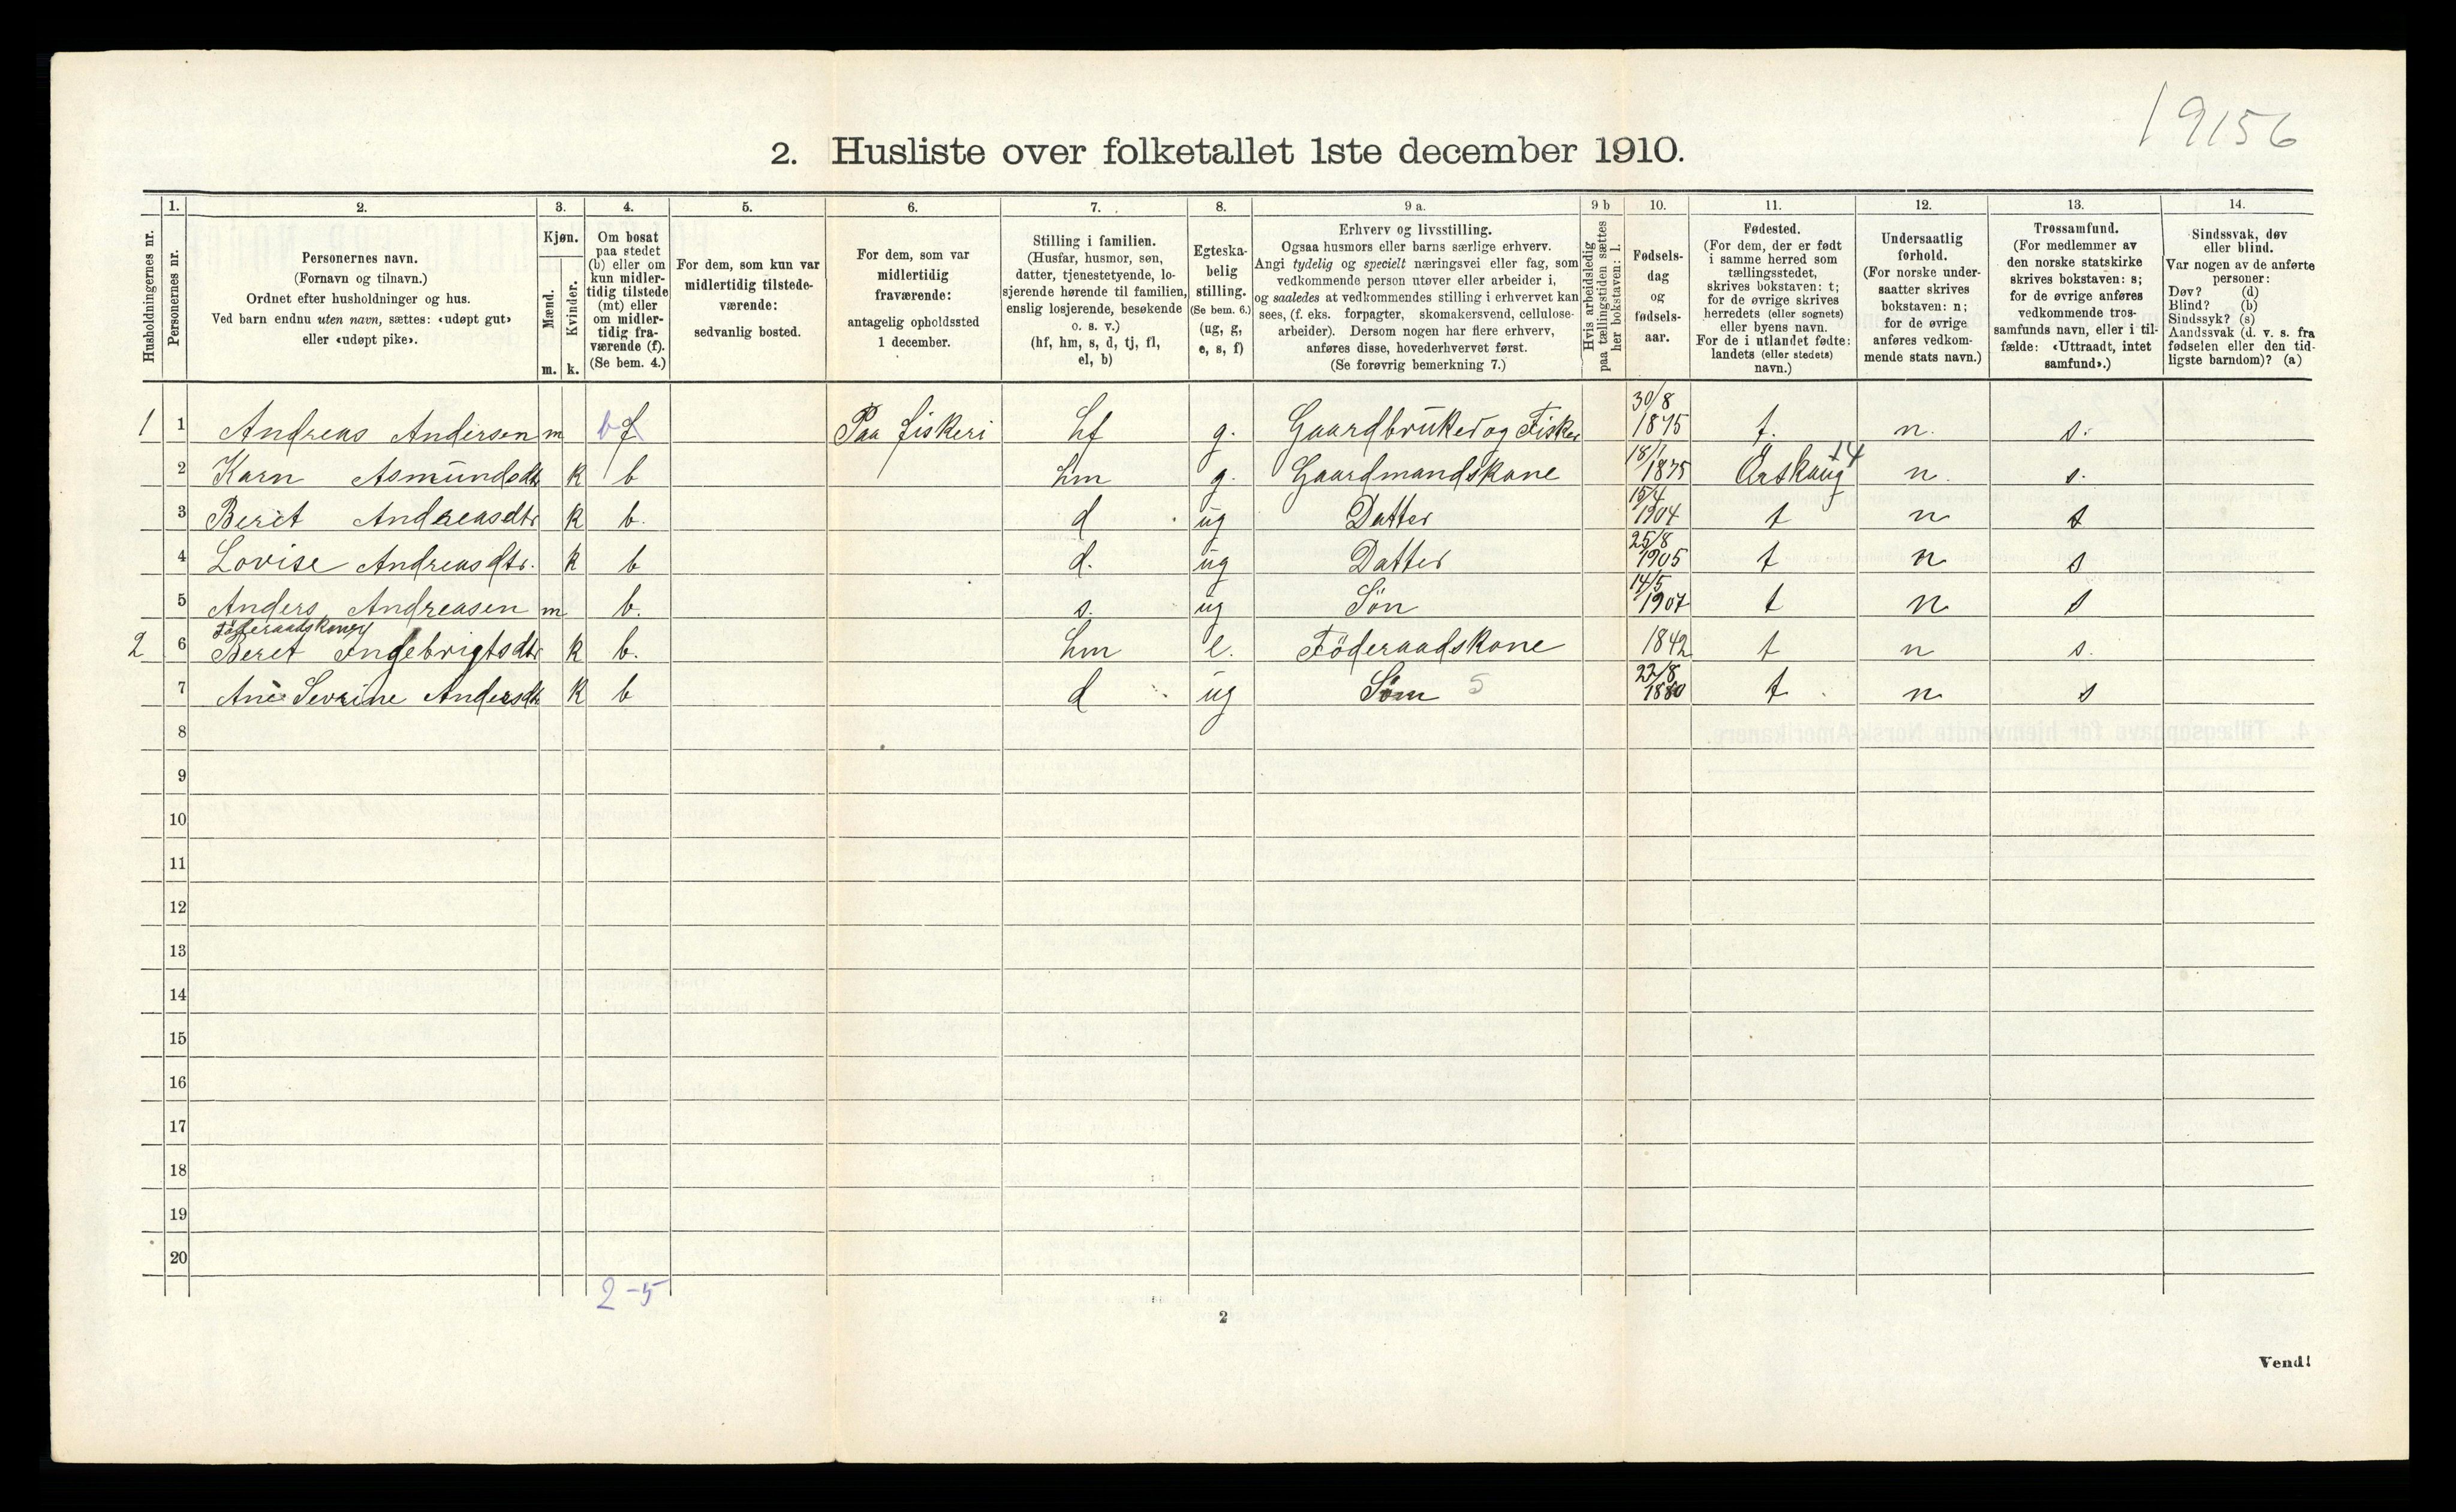 19156
2. Husliste over folketallet 1ste december 1910.
Husholdningernes nr.
1.
Personernes nr.
2.
Personernes navn.
(Fornavn og tilnavn.)
Ordnet efter husholdninger og hus.
Ved barn endnu uten navn, sættes: «udøpt gut»
eller «udøpt pike».
3.
Kjøn.
Mænd.
Kvinder.
m. k.
4.
Om bosat
paa stedet
(b) eller om
kun midler-
tidig tilstede
(mt) eller
om midler-
tidig fra-
værende (f).
(Se bem. 4.)
5.
For dem, som kun var
midlertidig tilstede-
værende:
sedvanlig bosted.
6.
For dem, som var
midlertidig
fraværende:
antagelig opholdssted
1 december.
7.
Stilling i familien.
(Husfar, husmor, søn,
datter, tjenestetyende, lo-
sjerende hørende til familien,
enslig losjerende, besøkende
o. s. v.)
(hf, hm, s, d, tj, fl,
el, b)
8.
Egteska-
belig
stilling.
(Se bem. 6.)
(ug, g,
e, s, f)
9 a.
Erhverv og livsstilling.
Ogsaa husmors eller barns særlige erhverv.
Angi tydelig og specielt næringsvei eller fag, som
vedkommende person utøver eller arbeider i,
og saaledes at vedkommendes stilling i erhvervet kan
sees, (f. eks. forpagter, skomakersvend, cellulose-
arbeider). Dersom nogen har flere erhverv,
anføres disse, hovederhvervet først.
(Se forøvrig bemerkning 7.)
9 b
Hvis arbeidsledig
paa tællingstiden sættes
her bokstaven: l.
10.
Fødsels-
dag
og
fødsels-
aar.
11.
Fødested.
(For dem, der er født
i samme herred som
tællingsstedet,
skrives bokstaven: t;
for de øvrige skrives
herredets (eller sognets)
eller byens navn.
For de i utlandet fødte:
landets (eller stedets)
navn.)
12.
Undersaatlig
forhold.
(For norske under-
saatter skrives
bokstaven: n;
for de øvrige
anføres vedkom-
mende stats navn.)
13.
Trossamfund.
(For medlemmer av
den norske statskirke
skrives bokstaven: s;
for de øvrige anføres
vedkommende tros-
samfunds navn, eller i til-
fælde: «Uttraadt, intet
samfund».)
14.
Sindssvak, døv
eller blind.
Var nogen av de anførte
personer:
Døv? (d)
Blind? (b)
Sindssyk? (s)
Aandssvak (d. v. s. fra
fødselen eller den tid-
ligste barndom)? (a)
1 1 Andreas Andersen m b f Paa fiskeri hf g. Gaardbruker og Fisker 30/8 1875 t. n. s.
2 Karn Asmundsdtr k b hm g. Gaardmandskone 18/1 1875 Örskaug 14 n. s.
3 Beret Andreasdtr k b. d ug Datter 15/4 1904 t n s
4 Lovise Andreasdtr. k b d. ug Datter 25/8 1905 t n s
5 Anders Andreasen m b. s. ug Søn 14/5 1907 t n s
Föderaadskone
2 6 Beret Ingebrigtsdtr k b. hm e. Föderaadskone 1842 t n s.
7 Ane Sevrine Andersdtr k b d ug Söm 5 22/8 1880 t n s
8
9
10
11
12
13
14
15
16
17
18
19
20
2-5
2
Vend!